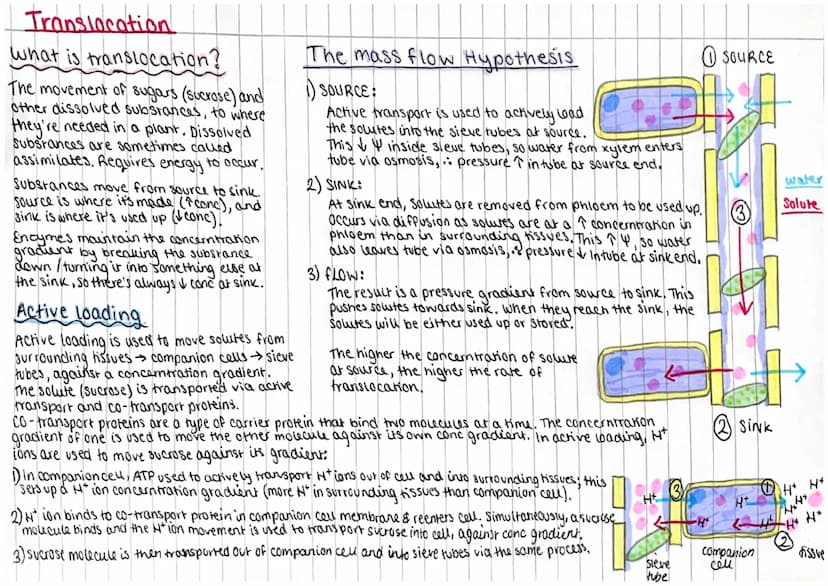 Translocation
What is translocation?
The movement of sugars (sucrose) and
other dissolved substances, to where
they're needed in a plant. Dissolved
substances are sometimes called
assimilates. Requires energy to occur.
Substances move from source to sink
source is where it's made (↑conc), and
sink is where it's used up (↓conc).
Enzymes maintain the concentration
gradient by breaking the substance
down / turning it into something else at
the sink, so there's always ↓ conc at sink.
Active loading
Active loading is used to move solutes from
surrounding tissues → companion cells → sieve
tubes, against a concentration gradient.
The solute (sucrose) is transported via active
transport and co-transport proteins.
Co-transport proteins are a type of carrier protein that bind two molecules at a time. The concentration
gradient of one is used to move the other molecule against its own conc gradient. In active loading, H+
ions are used to move sucrose against its gradient:
1) In companion cell, ATP used to actively transport H+ ions out of cell and into surrounding tissues; this
sets up a H+ ion concentration gradient (more H+ in surrounding tissues than companion cell).
2) H+ ion binds to co-transport protein in companion cell membrane & reenters cell. Simultaneously, a sucrose
molecule binds and the H+ ion movement is used to transport sucrose into cell, against conc gradient.
3) Sucrose molecule is then transported out of companion cell and into sieve tubes via the same process.
The mass flow Hypothesis
1) SOURCE:
Active transport is used to actively load
the solutes into the sieve tubes at source.
This ↓ Ψ inside sieve tubes, so water from xylem enters
tube via osmosis, ∴ pressure ↑ in tube at source end.
2) SINK:
At sink end, solutes are removed from phloem to be used up.
Occurs via diffusion as solutes are at a ↑ concentration in
phloem than in surrounding tissues. This ↑ Ψ, so water
also leaves tube via osmosis, ∴ pressure ↓ in tube at sink end.
3) FLOW:
The result is a pressure gradient from source to sink. This
pushes solutes towards sink. When they reach the sink, the
solutes will be either used up or stored.
The higher the concentration of solute
at source, the higher the rate of
translocation.
① SOURCE
water
solute
③
② Sink
H+
③
①
H+
H+
H+
H+
H+
H+
H+
H+
②
sieve
tube
companion
cell
tissue